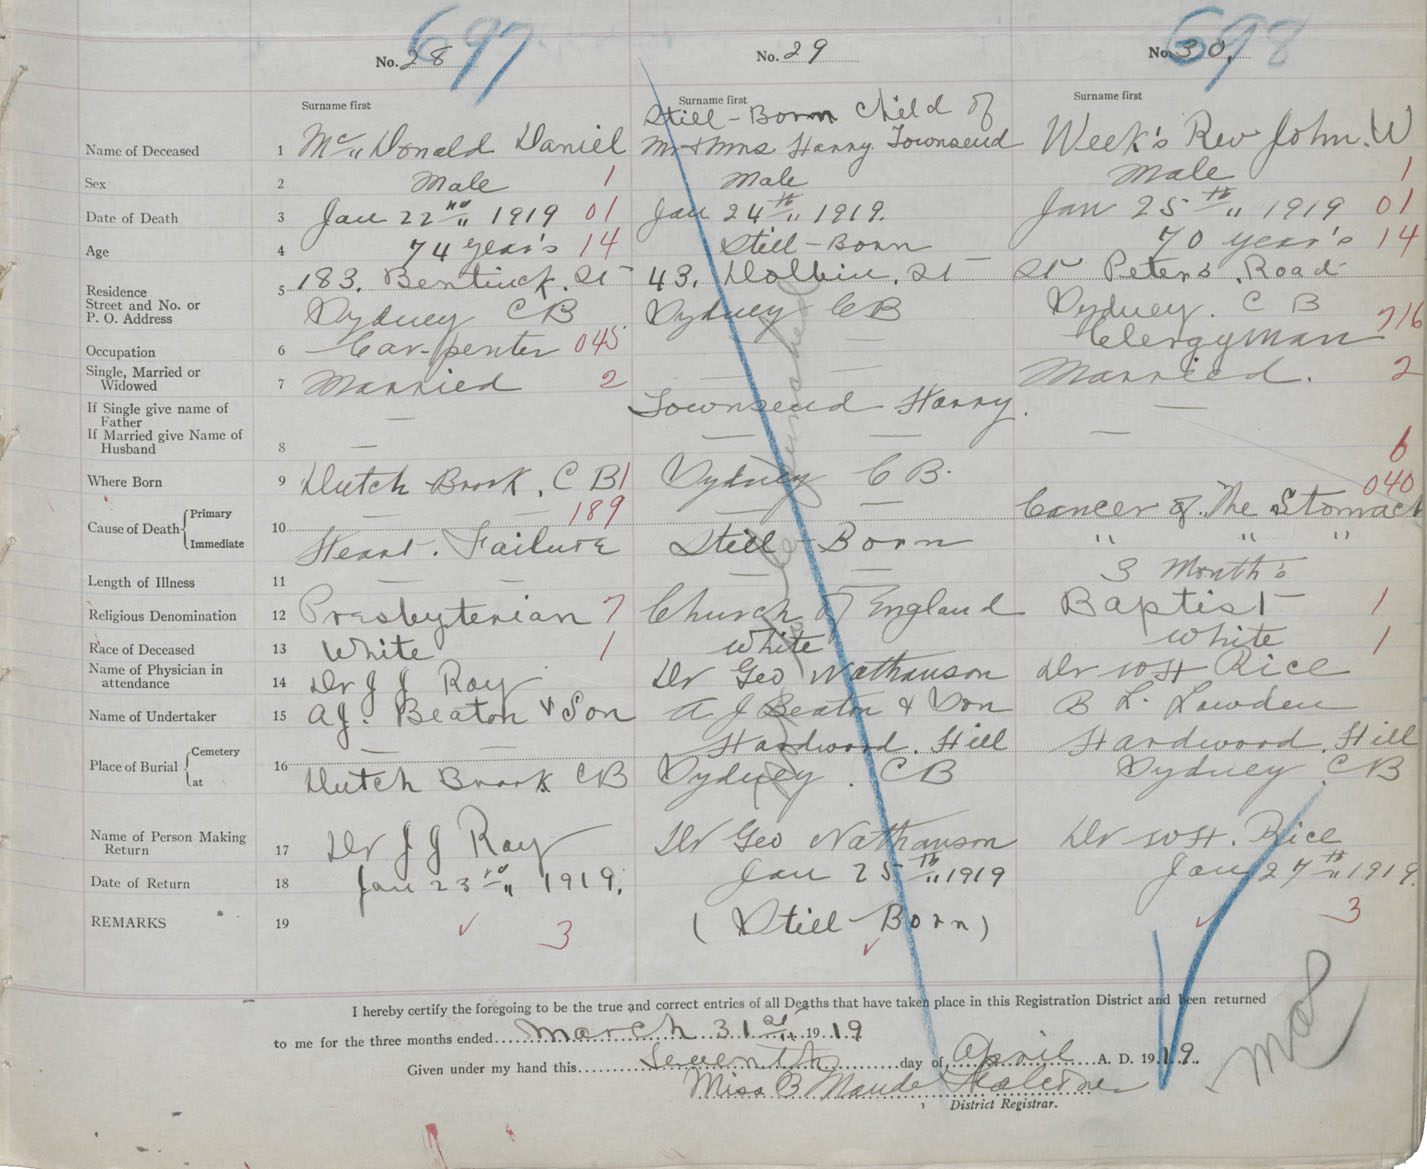 697
698
No. 28
No. 29
No. 30.
Surname first
Surname first
Surname first
Still-Born Child of
Name of Deceased 1 Mc„ Donald Daniel Mr + Mrs Harry Townsend Week's Rev John. W
Sex 2 Male 1 Male Male 1
Date of Death 3 Jan 22nd„ 1919 01 Jan 24th„ 1919. Jan 25th„ 1919 01
Age 4 74 year's 14 Still-Born 70 year's 14
Residence
Street and No. or
P. O. Address
5 183. Bentinck. St 43. Dolbin. St St Peters. Road
Sydney C B Sydney C B Sydney. C B
Occupation 6 Carpenter 045 — Clergyman 716
Single, Married or
Widowed
7 Married 2 Married. 2
If Single give name of
Father
— Townsend Harry. —
If Married give Name of
Husband
8 — — — —
6
Where Born 9 Dutch Brook. C B 1 Sydney C B. 040
Cause of Death Primary 10 — — 189 — — Cancer of. The Stomach
Immediate Heart. Failure Still-Born " " "
Length of Illness 11 — — — — 3 Month's
Religious Denomination 12 Presbyterian 7 Church of England Baptist 1
Race of Deceased 13 White 1 White White 1
Name of Physician in
attendance
14 Dr J J Roy Dr Geo Nathanson Dr W H Rice
Name of Undertaker 15 A J. Beaton & Son A J Beaton & Son B L. Lowden
Place of Burial Cemetery 16 — — Hardwood. Hill Hardwood. Hill
at Dutch Brook C B Sydney. C B Sydney. C B
Name of Person Making
Return
17 Dr J J Roy Dr Geo Nathanson Dr W H. Rice
Date of Return 18 Jan 23rd„ 1919. Jan 25th„ 1919 Jan 27th„ 1919.
REMARKS 19 3 (Still-Born) 3
I hereby certify the foregoing to be the true and correct entries of all Deaths that have taken place in this Registration District and been returned
to me for the three months ended March 31st 1919
Given under my hand this Seventh day of April A. D. 1919.
Miss B Maude
District Registrar.